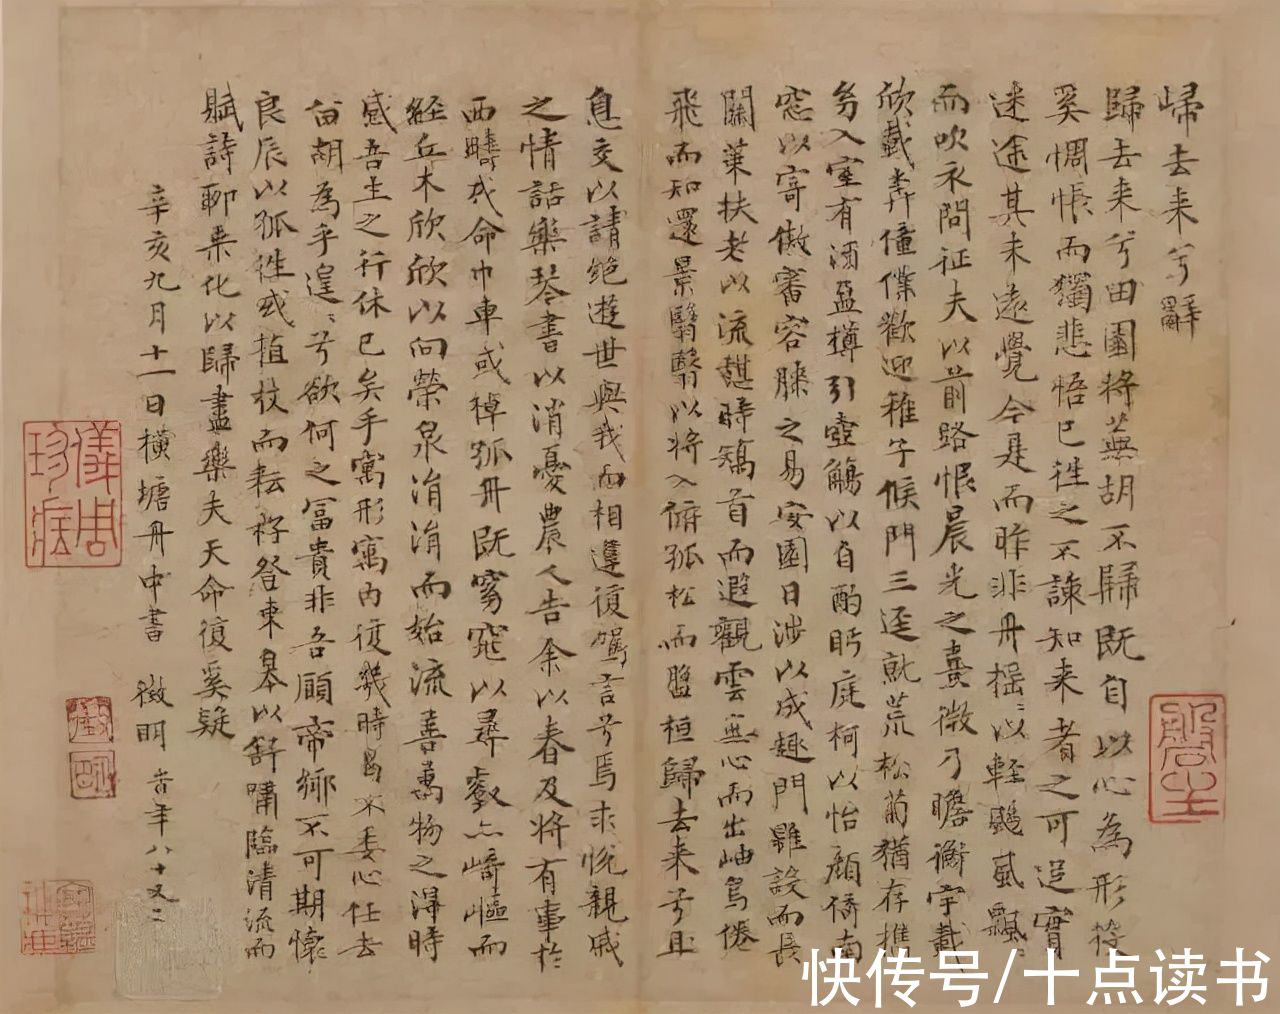 歸去来兮辭
歸去来兮田園将蕪胡不歸既自以心為形役
奚惆悵而獨悲悟已往之不諫知来者之可追實
迷途其未遠覺今是而昨非舟摇〻以軽颺風飄〻
而吹衣問征夫以前路恨晨光之熹微乃瞻衡宇載
欣載奔僮僕歡迎稚子候門三逕就荒松菊猶存携
㓜入室有酒盈樽引壺觴以自酌眄庭柯以怡顏倚南
窓以寄傲審容膝之易安園日涉以成趣門雖設而長
關策扶老以流憩時矯首而遐觀雲無心而出岫鳥倦
飛而知還景翳翳以将入撫孤松而盤桓歸去来兮且
息交以請絶遊世與我而相遺復駕言兮焉求悅親戚
之情話樂琴書以消憂農人告余以春及将有事於
西疇或命巾車或棹孤舟既窈窕以尋壑亦崎嶇而
經丘木欣欣以向榮泉涓涓而始流善萬物之得時
感吾生之行休已矣乎寓形寓內復幾時曷不委心任去
留胡為乎遑〻兮欲何之冨貴非吾願帝鄉不可期懷
良辰以孤往或植杖而耘耔登東皋以舒嘯臨清流而
賦詩聊乘化以歸盡樂夫天命復奚疑
辛亥九月十一日横塘舟中書 徵明 旹年八十又二
快传号/十点读书